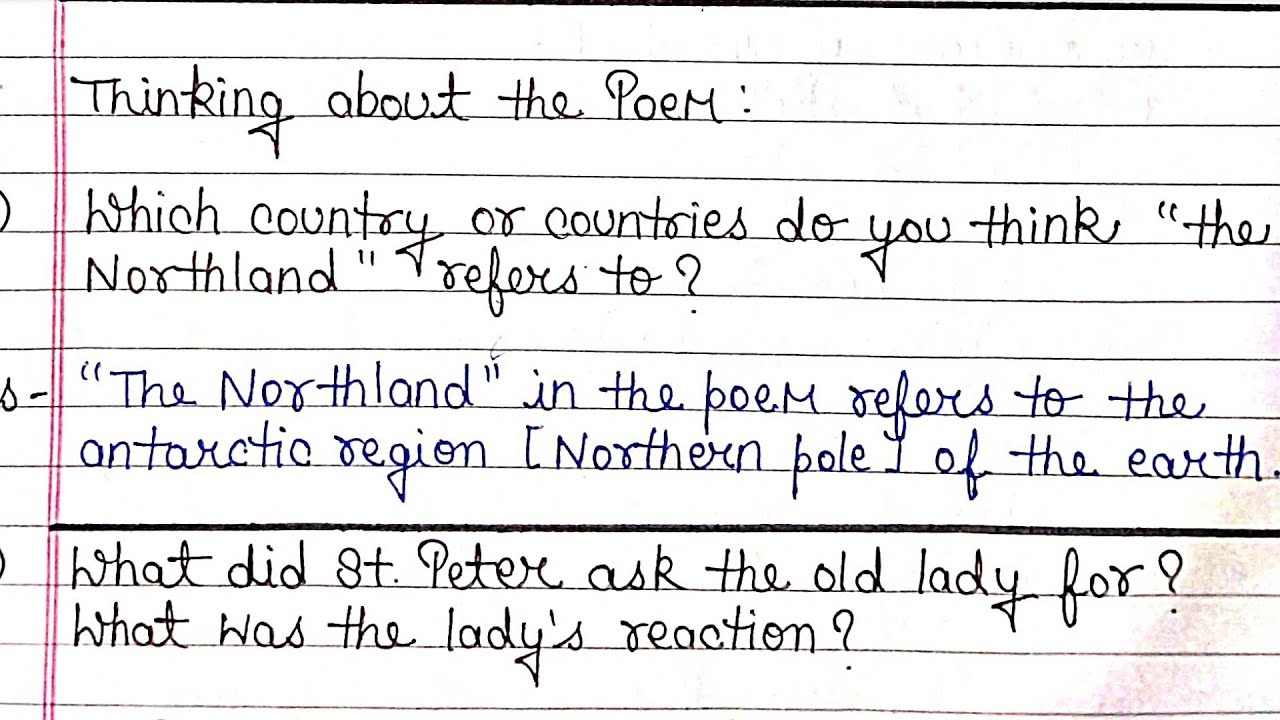 Thinking about the Poem:
) Which country or countries do you think "the
Northland" refers to?
s- "The Northland" in the poem refers to the
antarctic region [Northern pole] of the earth.
) What did St. Peter ask the old lady for?
What was the lady's reaction?